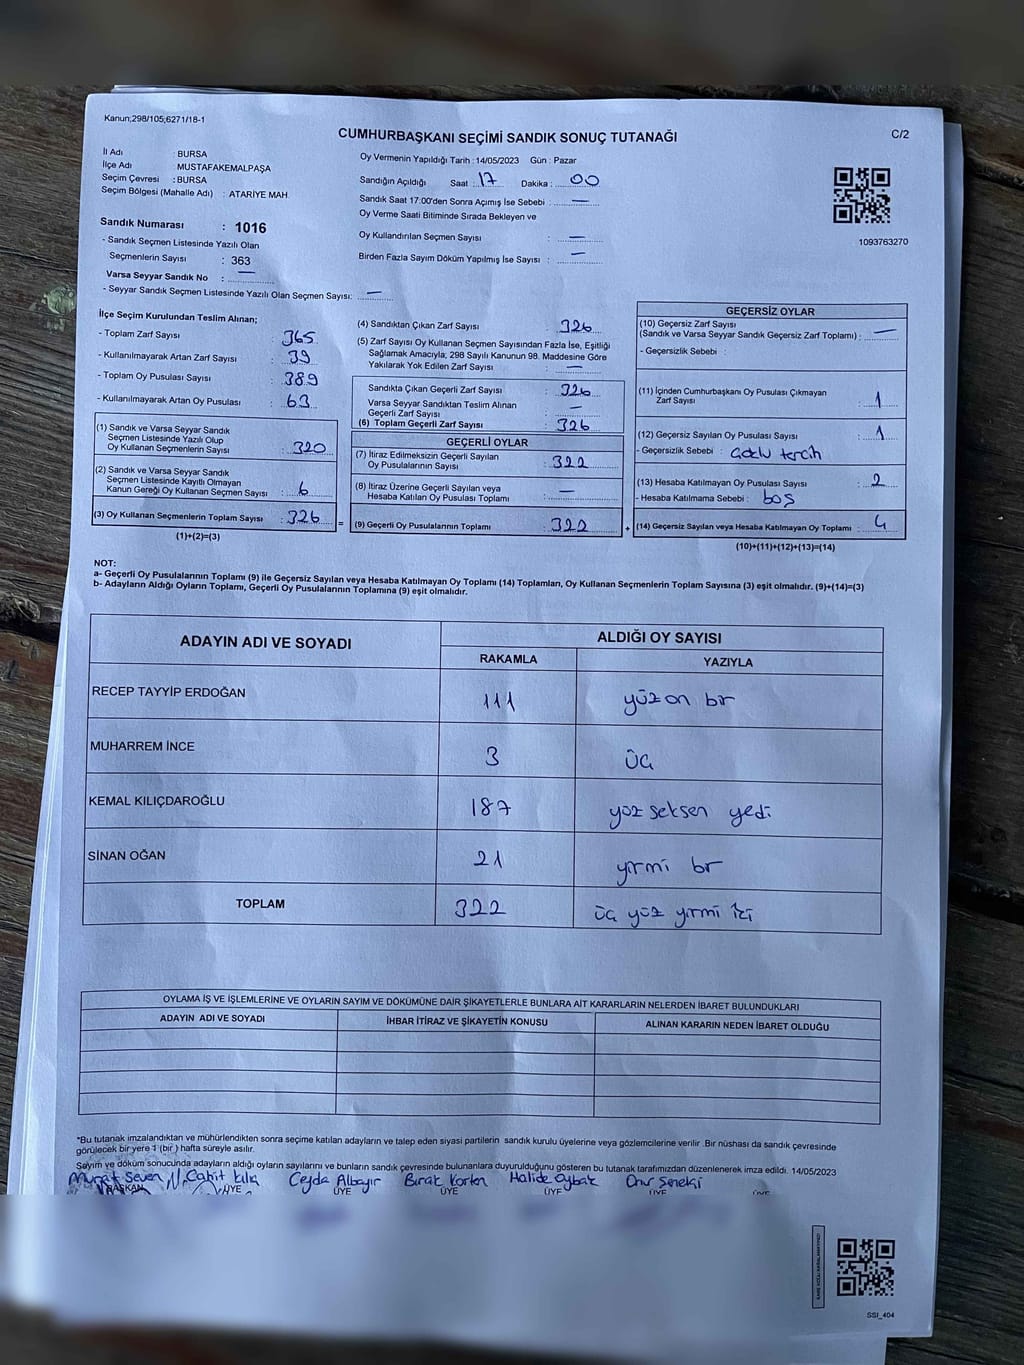 Kanun;298/105;6271/18-1
CUMHURBAŞKANI SEÇİMİ SANDIK SONUÇ TUTANAĞI
C/2
İl Adı : BURSA
İlçe Adı : MUSTAFAKEMALPAŞA
Seçim Çevresi : BURSA
Seçim Bölgesi (Mahalle Adı) : ATARİYE MAH.
Oy Vermenin Yapıldığı Tarih : 14/05/2023 Gün : Pazar
Sandığın Açıldığı Saat : 17 Dakika : 00
Sandık Saat 17:00'den Sonra Açımış İse Sebebi : —
Oy Verme Saati Bitiminde Sırada Bekleyen ve
Oy Kullandırılan Seçmen Sayısı : —
Birden Fazla Sayım Döküm Yapılmış İse Sayısı : —
1093763270
Sandık Numarası : 1016
- Sandık Seçmen Listesinde Yazılı Olan
Seçmenlerin Sayısı : 363
Varsa Seyyar Sandık No : —
- Seyyar Sandık Seçmen Listesinde Yazılı Olan Seçmen Sayısı: —
İlçe Seçim Kurulundan Teslim Alınan;
- Toplam Zarf Sayısı : 365
- Kullanılmayarak Artan Zarf Sayısı : 39
- Toplam Oy Pusulası Sayısı : 389
- Kullanılmayarak Artan Oy Pusulası : 63
(1) Sandık ve Varsa Seyyar Sandık
Seçmen Listesinde Yazılı Olup
Oy Kullanan Seçmenlerin Sayısı : 320
(2) Sandık ve Varsa Seyyar Sandık
Seçmen Listesinde Kayıtlı Olmayan
Kanun Gereği Oy Kullanan Seçmen Sayısı : 6
(3) Oy Kullanan Seçmenlerin Toplam Sayısı : 326
(1)+(2)=(3)
=
(4) Sandıktan Çıkan Zarf Sayısı : 326
(5) Zarf Sayısı Oy Kullanan Seçmen Sayısından Fazla İse, Eşitliği
Sağlamak Amacıyla, 298 Sayılı Kanunun 98. Maddesine Göre
Yakılarak Yok Edilen Zarf Sayısı : —
Sandıkta Çıkan Geçerli Zarf Sayısı : 326
Varsa Seyyar Sandıktan Teslim Alınan
Geçerli Zarf Sayısı : —
(6) Toplam Geçerli Zarf Sayısı : 326
GEÇERLİ OYLAR
(7) İtiraz Edilmeksizin Geçerli Sayılan
Oy Pusulalarının Sayısı : 322
(8) İtiraz Üzerine Geçerli Sayılan veya
Hesaba Katılan Oy Pusulası Toplamı : —
(9) Geçerli Oy Pusulalarının Toplamı : 322
+
GEÇERSİZ OYLAR
(10) Geçersiz Zarf Sayısı
(Sandık ve Varsa Seyyar Sandık Geçersiz Zarf Toplamı) : —
- Geçersizlik Sebebi :
(11) İçinden Cumhurbaşkanı Oy Pusulası Çıkmayan
Zarf Sayısı : 1
(12) Geçersiz Sayılan Oy Pusulası Sayısı : 1
- Geçersizlik Sebebi : Çoklu tercih
(13) Hesaba Katılmayan Oy Pusulası Sayısı : 2
- Hesaba Katılmama Sebebi : boş
(14) Geçersiz Sayılan veya Hesaba Katılmayan Oy Toplamı : 4
(10)+(11)+(12)+(13)=(14)
NOT:
a- Geçerli Oy Pusulalarının Toplamı (9) ile Geçersiz Sayılan veya Hesaba Katılmayan Oy Toplamı (14) Toplamları, Oy Kullanan Seçmenlerin Toplam Sayısına (3) eşit olmalıdır. (9)+(14)=(3)
b- Adayların Aldığı Oyların Toplamı, Geçerli Oy Pusulalarının Toplamına (9) eşit olmalıdır.
ADAYIN ADI VE SOYADI
ALDIĞI OY SAYISI
RAKAMLA YAZIYLA
RECEP TAYYİP ERDOĞAN 111 yüz on bir
MUHARREM İNCE 3 üç
KEMAL KILIÇDAROĞLU 187 yüz seksen yedi
SİNAN OĞAN 21 yirmi bir
TOPLAM 322 üç yüz yirmi iki
OYLAMA İŞ VE İŞLEMLERİNE VE OYLARIN SAYIM VE DÖKÜMÜNE DAİR ŞİKAYETLERLE BUNLARA AİT KARARLARIN NELERDEN İBARET BULUNDUKLARI
ADAYIN ADI VE SOYADI İHBAR İTİRAZ VE ŞİKAYETİN KONUSU ALINAN KARARIN NEDEN İBARET OLDUĞU
*Bu tutanak imzalandıktan ve mühürlendikten sonra seçime katılan adayların ve talep eden siyasi partilerin sandık kurulu üyelerine veya gözlemcilerine verilir .Bir nüshası da sandık çevresinde
görülecek bir yere 1 (bir ) hafta süreyle asılır.
Sayım ve döküm sonucunda adayların aldığı oyların sayılarını ve bunların sandık çevresinde bulunanlara duyurulduğunu gösteren bu tutanak tarafımızdan düzenlenerek imza edildi. 14/05/2023
Murat Seven Cahit Kılıç Ceyda Albayır Burak Korten Halide Aybak Onur Senekçi
BAŞKAN ÜYE ÜYE ÜYE ÜYE ÜYE ÜYE
SSİ_404